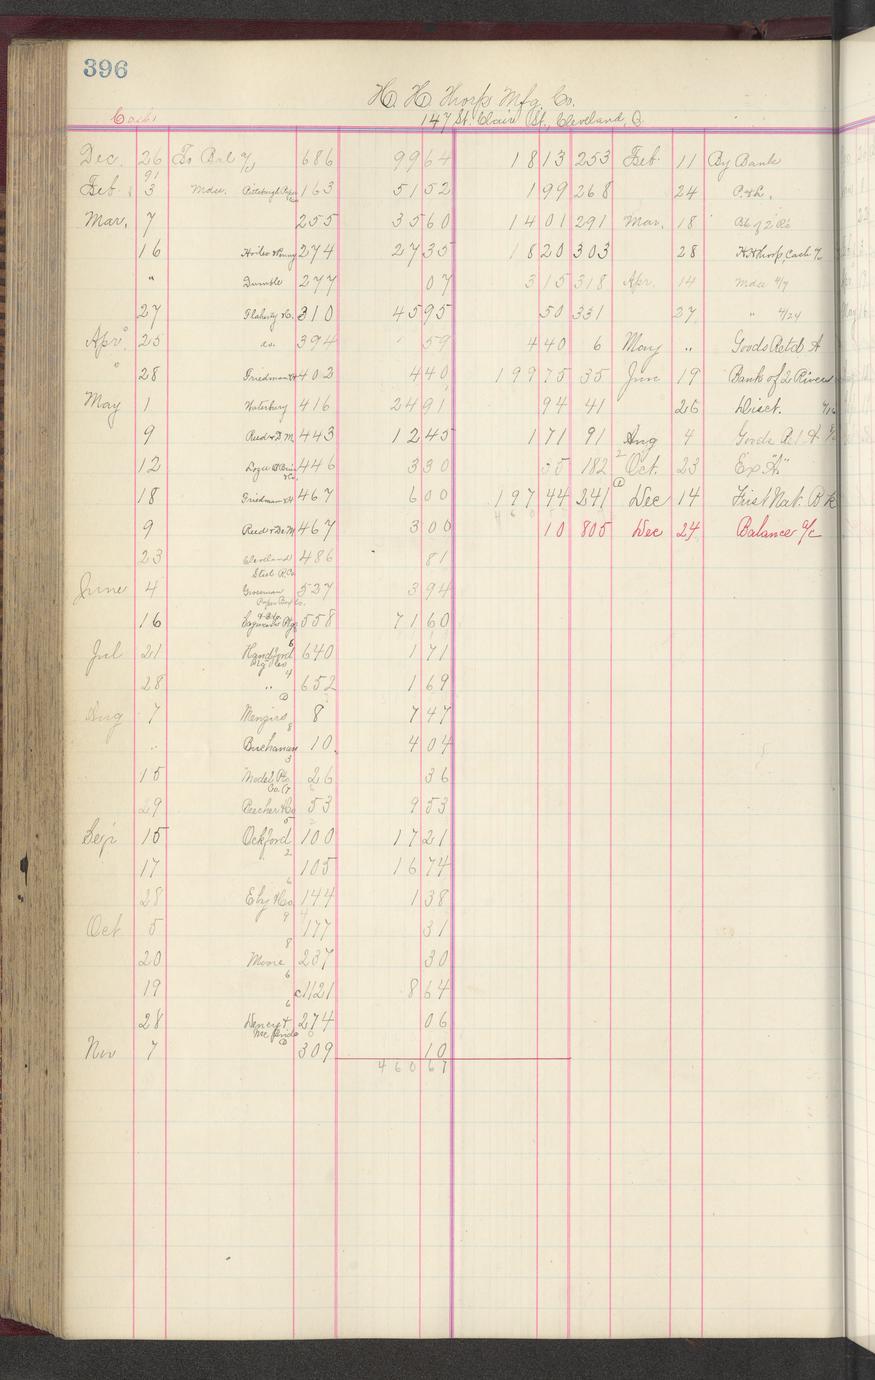 396
H. H. Thorp Mfg. Co.
Cash 147 St. Clair St., Cleveland, O.
Dec. 26 To Bal 686 99 64 18 13 253 Feb. 11 By Bank
91
Feb. 3 Mdse. Pittsburgh Paper Co 163 51 52 1 99 268 24 P. & L.
Mar. 7 255 35 60 14 01 291 Mar. 18 Bk of 2 Rs
16 274 27 35 18 20 303 28 H.H. Thorp, Cash
" Dumble 277 07 3 15 318 Apr. 14 Mdse 4/7
27 Flaherty & Co. 310 45 95 50 331 27 " 4/24
Apr. 25 do. 394 59 4 40 6 May " Goods Retd A
" 28 Friedman & H 402 4 40 199 75 35 June 19 Bank of 2 Rivers
May 1 Waterbury 416 24 91 94 41 26 Disct.
9 Reed & D M 443 12 45 1 71 91 Aug 4 Goods Ret A
12 446 3 30 55 182 Oct. 23 Ex "A"
18 Friedman & H 467 6 00 197 44 241 Dec 14 First Nat. Bk
9 Reed & De M 467 3 00 10 805 Dec 24 Balance a/c
460
23 Cleveland 486 81
Steel R. Co
June 4 Grossman 527 3 94
Paper Box Co.
16 558 71 60
Jul 21 Handford 640 1 71
Mfg Co
28 " 652 1 69
Aug 7 8 7 47
" Buchanan 10 4 04
15 Model 26 36
29 Beecher & Co 53 9 53
Sep. 15 Ockford 100 17 21
17 105 16 74
28 Eby & Co 144 1 38
Oct 5 177 31
20 Moore 237 30
19 1121 8 64
28 274 06
Nov 7 309 10
460 67